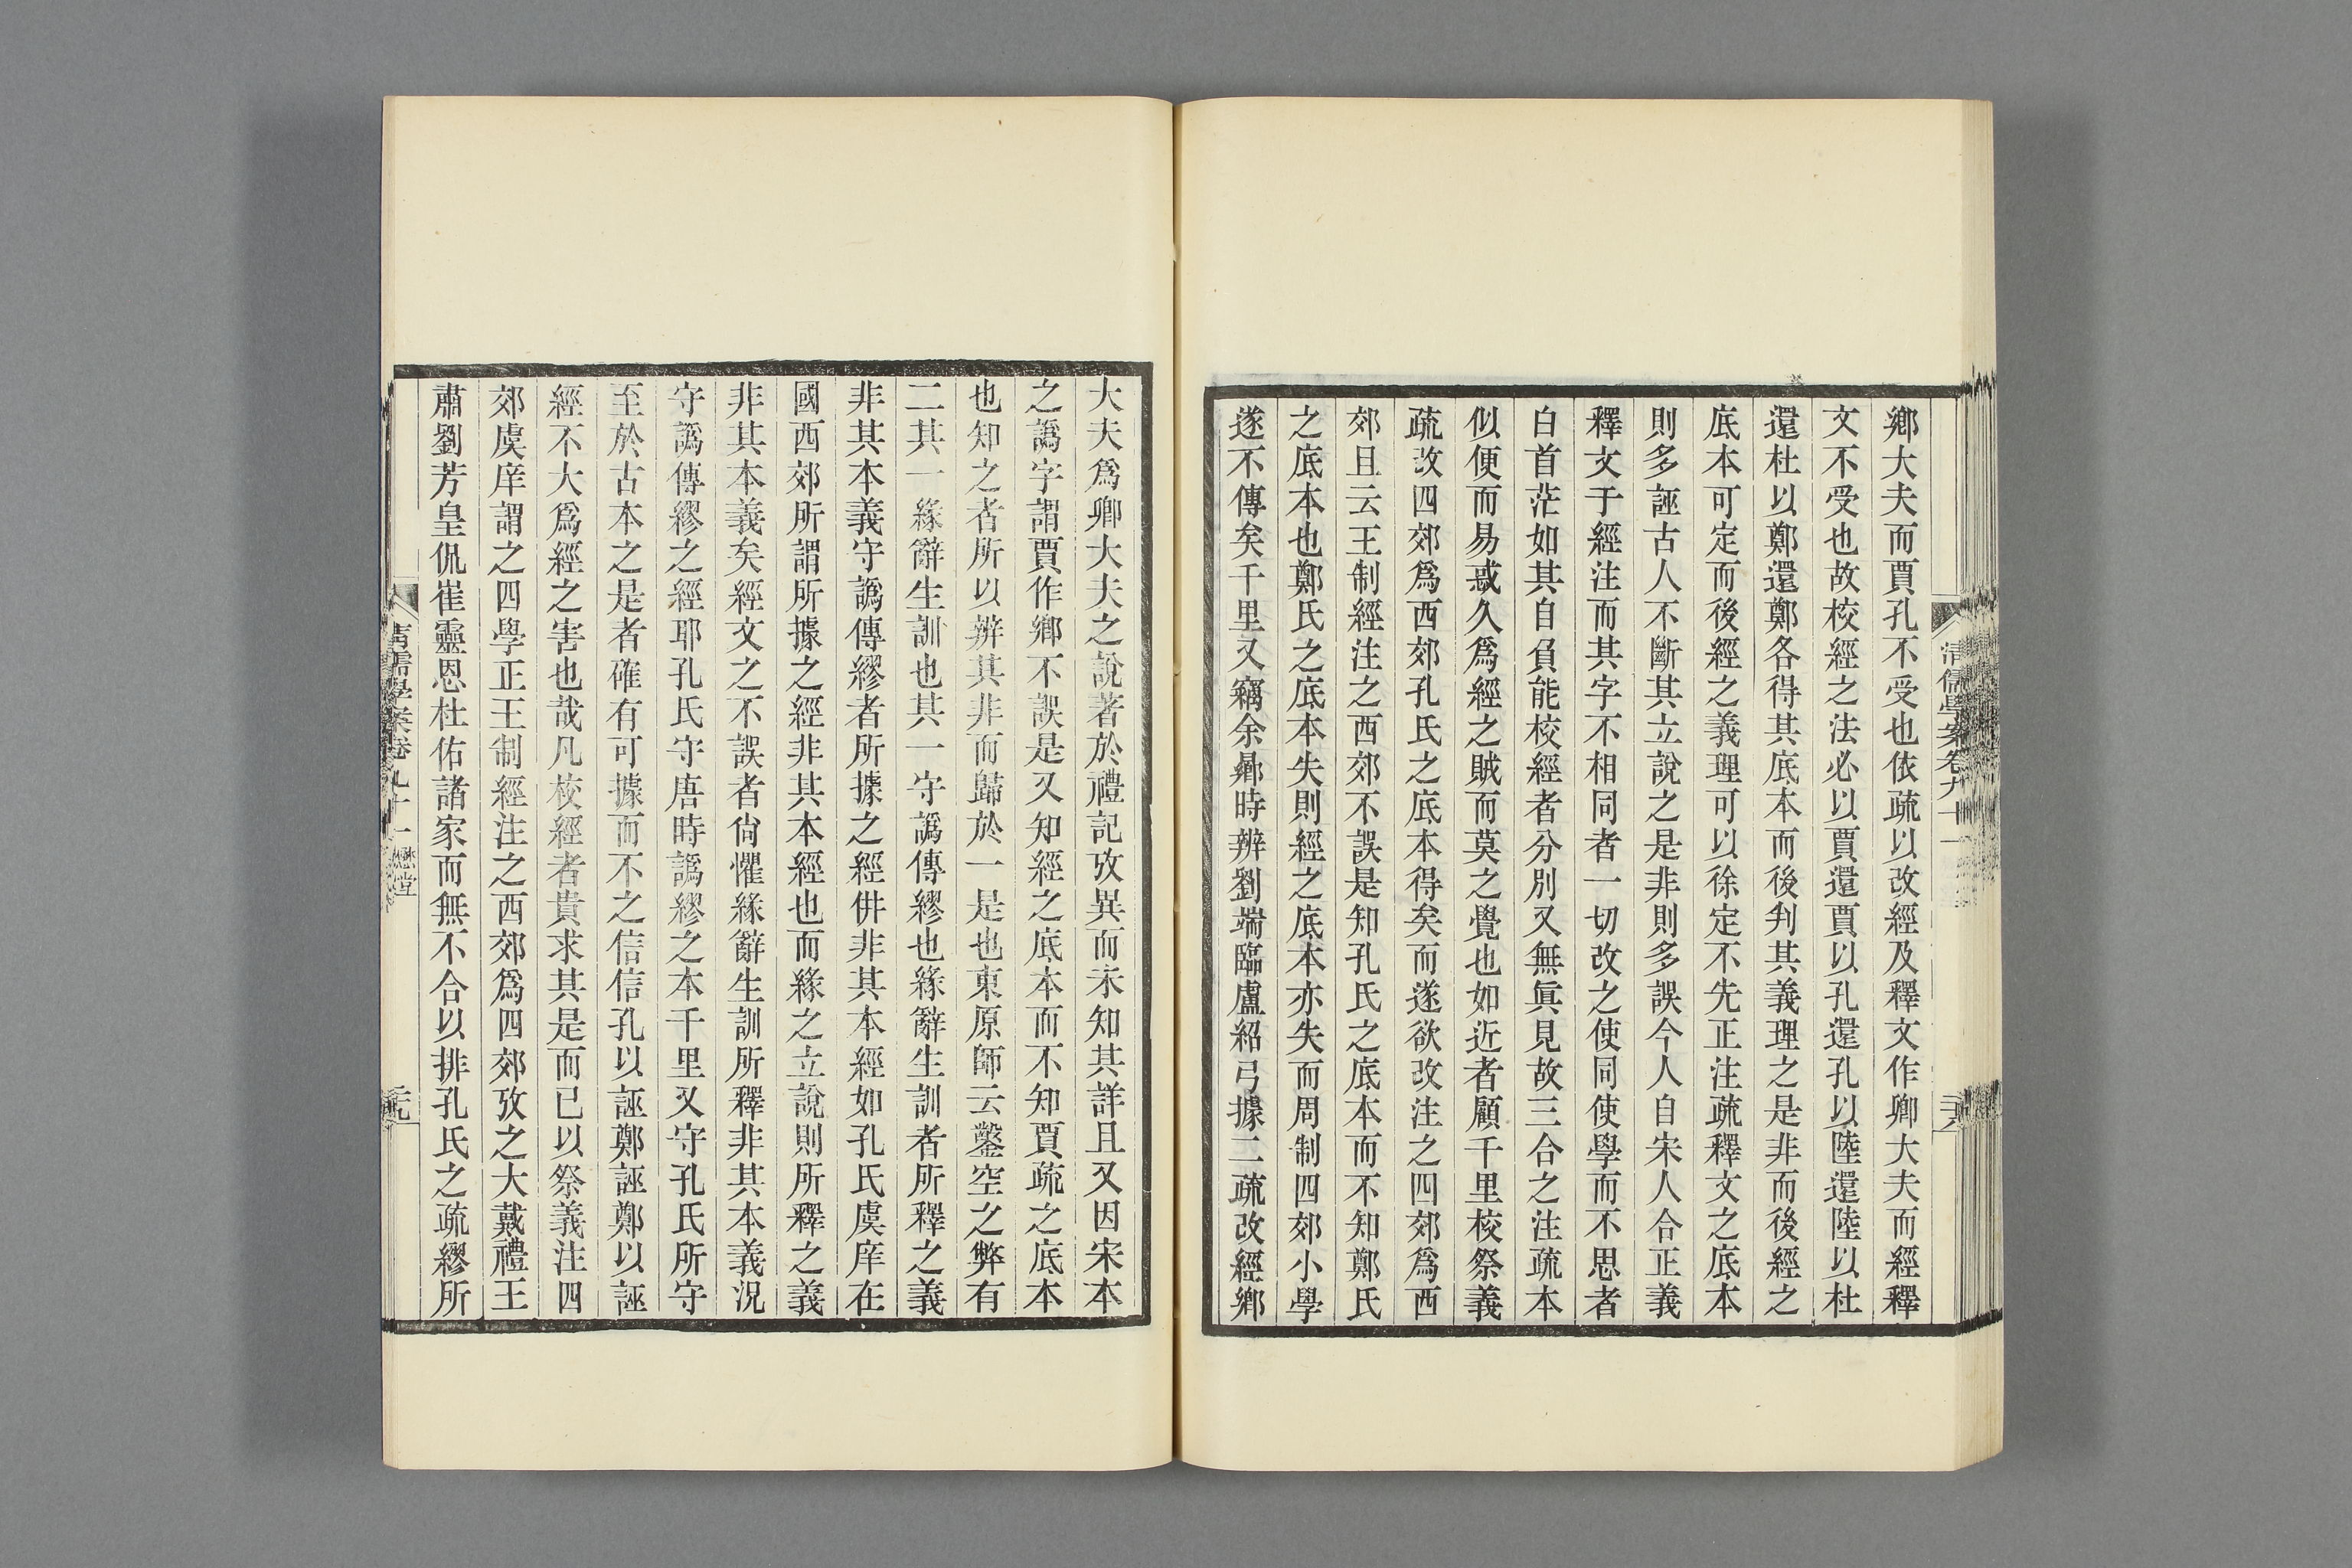 鄉大夫而賈孔不受也依疏以改經及釋文作卿大夫而經釋
文不受也故校經之法必以賈還賈以孔還孔以陸還陸以杜
還杜以鄭還鄭各得其底本而後判其義理之是非而後經之
底本可定而後經之義理可以徐定不先正注疏釋文之底本
則多誣古人不斷其立說之是非則多誤今人自宋人合正義
釋文于經注而其字不相同者一切改之使同使學而不思者
白首茫如其自負能校經者分別又無眞見故三合之注疏本
似便而易惑久爲經之賊而莫之覺也如近者顧千里校祭義
疏改四郊爲西郊孔氏之底本得矣而遂欲改注之四郊爲西
郊且云王制經注之西郊不誤是知孔氏之底本而不知鄭氏
之底本也鄭氏之底本失則經之底本亦失而周制四郊小學
遂不傳矣千里又竊余曏時辨劉端臨盧紹弓據二疏改經鄉
清儒學案卷九十一
大夫爲卿大夫之說著於禮記攷異而未知其詳且又因宋本
之譌字謂賈作鄉不誤是又知經之底本而不知賈疏之底本
也知之者所以辨其非而歸於一是也東原師云鑿空之弊有
二其一緣辭生訓也其一守譌傳繆也緣辭生訓者所釋之義
非其本義守譌傳繆者所據之經倂非其本經如孔氏虞庠在
國西郊所謂所據之經非其本經也而緣之立說則所釋之義
非其本義矣經文之不誤者尙懼緣辭生訓所釋非其本義況
守譌傳繆之經耶孔氏守唐時譌繆之本千里又守孔氏所守
至於古本之是者確有可據而不之信信孔以誣鄭誣鄭以誣
經不大爲經之害也哉凡校經者貴求其是而已以祭義注四
郊虞庠謂之四學正王制經注之西郊爲四郊攷之大戴禮王
肅劉芳皇侃崔靈恩杜佑諸家而無不合以排孔氏之疏繆所
清儒學案卷九十一 懋堂